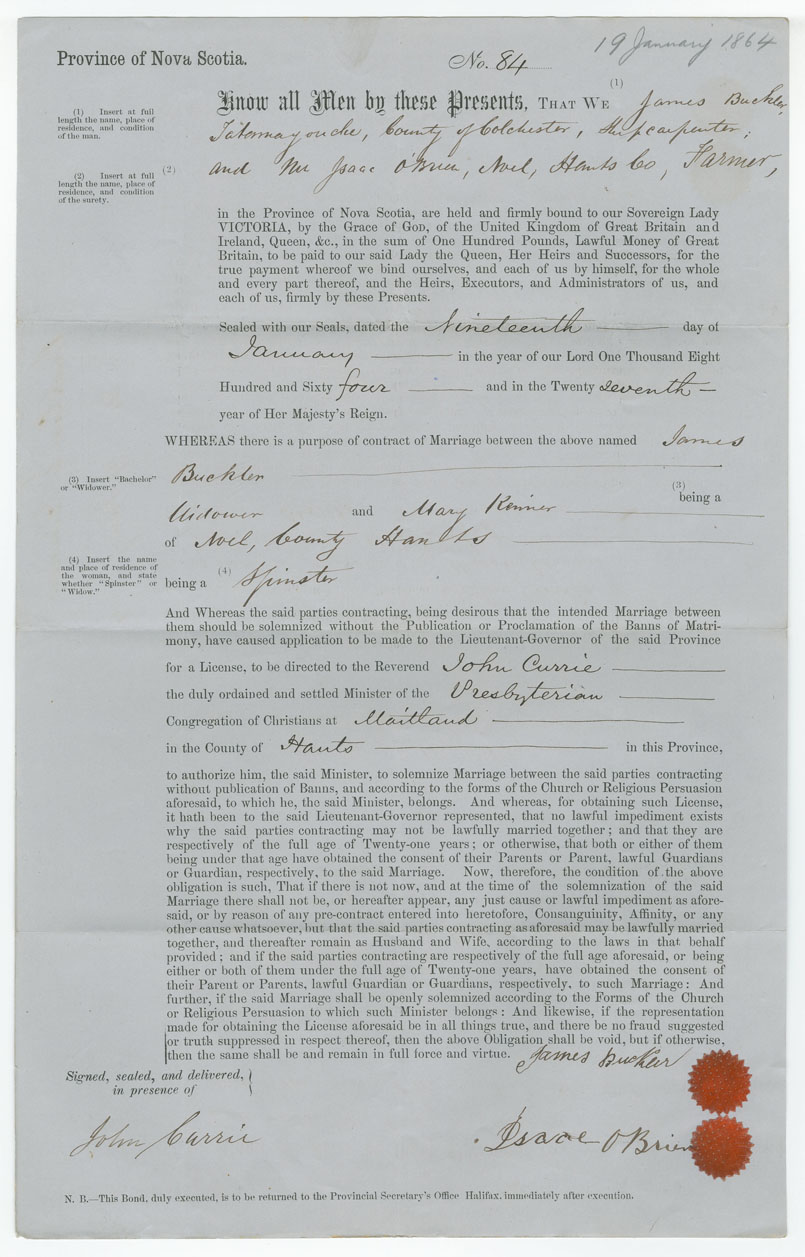 19 January 1864
Province of Nova Scotia.
No. 84
(1) Insert at full
length the name, place of
residence, and condition
of the man.
Know all Men by these Presents, THAT WE (1) James Buckler,
Tatamagouche, County of Colchester, Shipcarpenter,
(2) Insert at full
length the name, place of
residence, and condition
of the surety.
(2) and Mr Isaac O'Brien, Noel, Hants Co, Farmer,
in the Province of Nova Scotia, are held and firmly bound to our Sovereign Lady
VICTORIA, by the Grace of GOD, of the United Kingdom of Great Britain and
Ireland, Queen, &c., in the sum of One Hundred Pounds, Lawful Money of Great
Britain, to be paid to our said Lady the Queen, Her Heirs and Successors, for the
true payment whereof we bind ourselves, and each of us by himself, for the whole
and every part thereof, and the Heirs, Executors, and Administrators of us, and
each of us, firmly by these Presents.
Sealed with our Seals, dated the Nineteenth day of
January in the year of our Lord One Thousand Eight
Hundred and Sixty four and in the Twenty seventh
year of Her Majesty's Reign.
WHEREAS there is a purpose of contract of Marriage between the above named James
(3) Insert "Bachelor"
or "Widower."
Buckler
(3) being a
Widower and Mary
of Noel, County Hants
(4) Insert the name
and place of residence of
the woman, and state
whether "Spinster" or
"Widow."
being a (4) Spinster
And Whereas the said parties contracting, being desirous that the intended Marriage between
them should be solemnized without the Publication or Proclamation of the Banns of Matri-
mony, have caused application to be made to the Lieutenant-Governor of the said Province
for a License, to be directed to the Reverend John Currie
the duly ordained and settled Minister of the Presbyterian
Congregation of Christians at Maitland
in the County of Hants in this Province,
to authorize him, the said Minister, to solemnize Marriage between the said parties contracting
without publication of Banns, and according to the forms of the Church or Religious Persuasion
aforesaid, to which he, the said Minister, belongs. And whereas, for obtaining such License,
it hath been to the said Lieutenant-Governor represented, that no lawful impediment exists
why the said parties contracting may not be lawfully married together; and that they are
respectively of the full age of Twenty-one years; or otherwise, that both or either of them
being under that age have obtained the consent of their Parents or Parent, lawful Guardians
or Guardian, respectively, to the said Marriage. Now, therefore, the condition of the above
obligation is such, That if there is not now, and at the time of the solemnization of the said
Marriage there shall not be, or hereafter appear, any just cause or lawful impediment as afore-
said, or by reason of any pre-contract entered into heretofore, Consanguinity, Affinity, or any
other cause whatsoever, but that the said parties contracting as aforesaid may be lawfully married
together, and thereafter remain as Husband and Wife, according to the laws in that behalf
provided; and if the said parties contracting are respectively of the full age aforesaid, or being
either or both of them under the full age of Twenty-one years, have obtained the consent of
their Parent or Parents, lawful Guardian or Guardians, respectively, to such Marriage: And
further, if the said Marriage shall be openly solemnized according to the Forms of the Church
or Religious Persuasion to which such Minister belongs: And likewise, if the representation
made for obtaining the License aforesaid be in all things true, and there be no fraud suggested
or truth suppressed in respect thereof, then the above Obligation shall be void, but if otherwise,
then the same shall be and remain in full force and virtue.
James Buckler
Signed, sealed, and delivered,
in presence of
John Currie
Isaac O'Brien
N. B.—This Bond, duly executed, is to be returned to the Provincial Secretary's Office Halifax, immediately after execution.